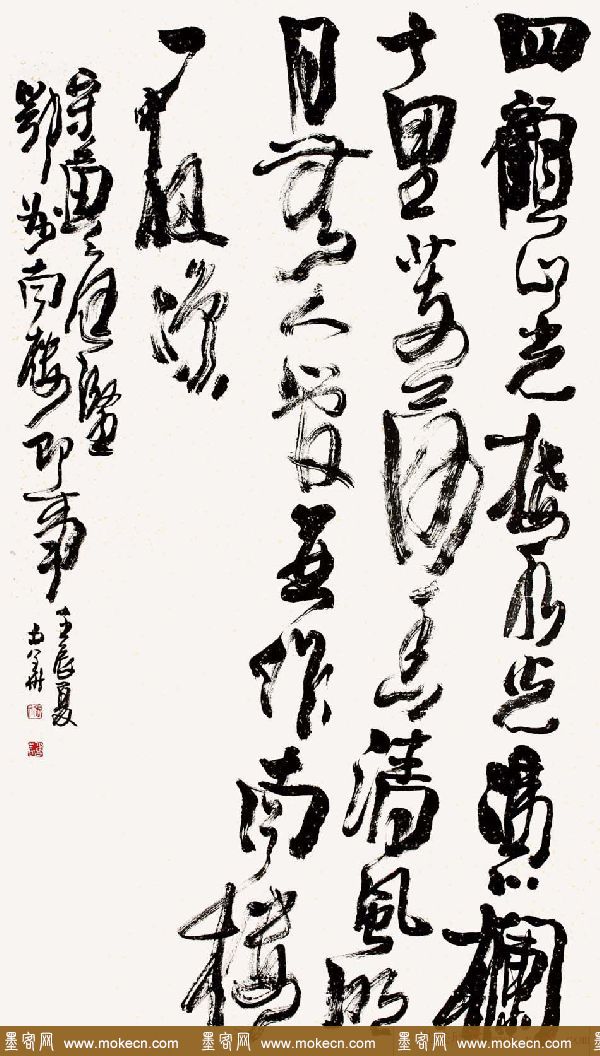 四顧山光接水光凭欄
十里芰荷香清風明
月無人管並作南樓
一味涼
宋黄庭堅
鄂州南樓即事
壬辰夏
墨客网 www.mokecn.com 墨客网 www.mokecn.com 墨客网 www.mokecn.com